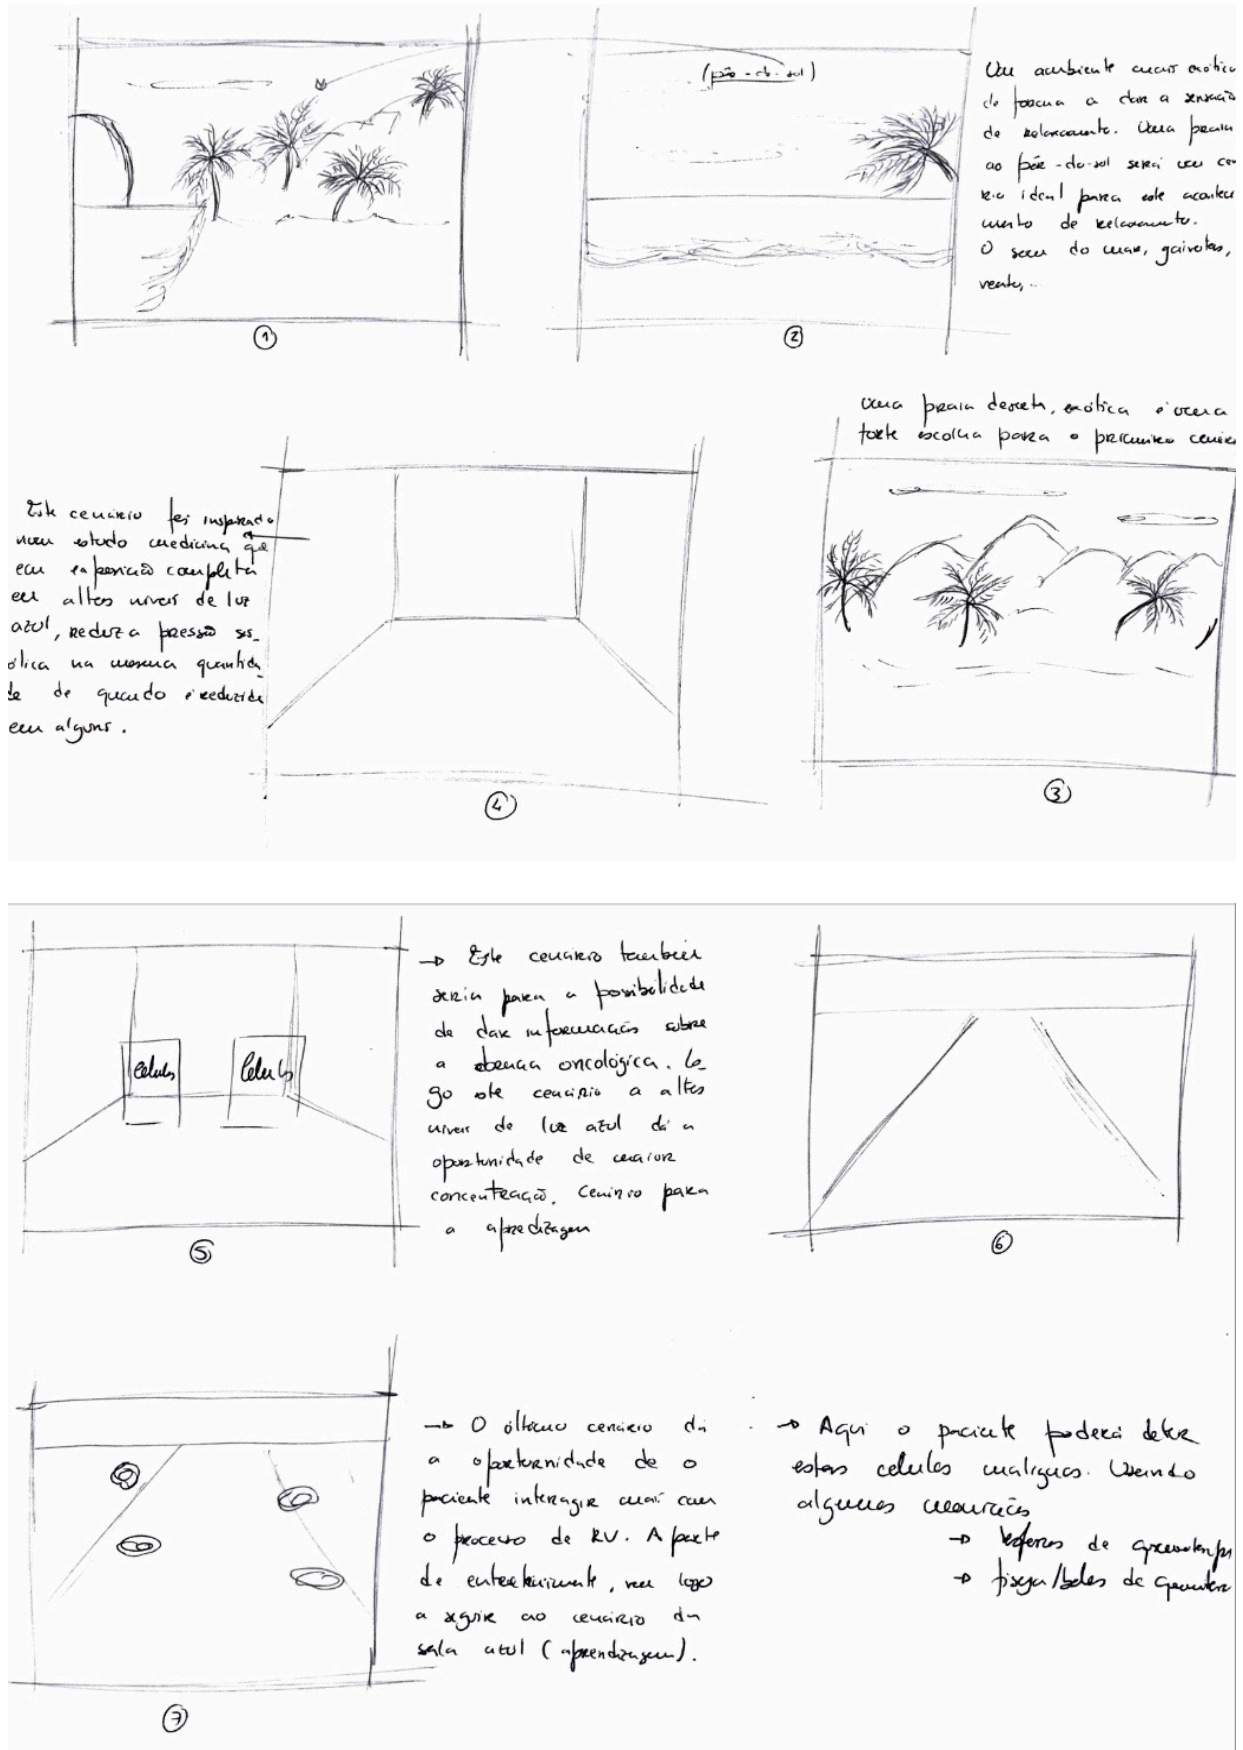 (pôr-do-sol)
Um ambiente mais exótico
de forma a dar a sensação
de relaxamento. Uma praia
ao pôr-do-sol será um cen
rio ideal para este acontec
mento de relaxamento.
O som do mar, gaivotas,
vento,...
①
②
Uma praia deserta, exótica é uma
forte escolha para o primeiro cenári
Este cenário foi inspirado
num estudo medicina que
em exposição completa
em altos niveis de luz
azul, reduz a pressão sis_
ólica na mesma quantida_
de de quando é reduzida
em alguns.
④
③
→ Este cenário também
seria para a possibilidade
de dar informação sobre
a doença oncológica. Lo_
go este cenário a altos
niveis de luz azul dá a
oportunidade de maior
concentração. Cenário para
a apredizagem
Celulas
Celulas
⑤
⑥
→ O último cenário dá
a oportunidade de o
paciente interagir mais com
o processo de RV. A parte
de entretenimento, vem logo
a seguir ao cenário da
sala azul (aprendizagem).
→ Aqui o paciente poderá deter
estas celulas malignas. Usando
algumas
→ esferas de
→ /bolas de
⑦